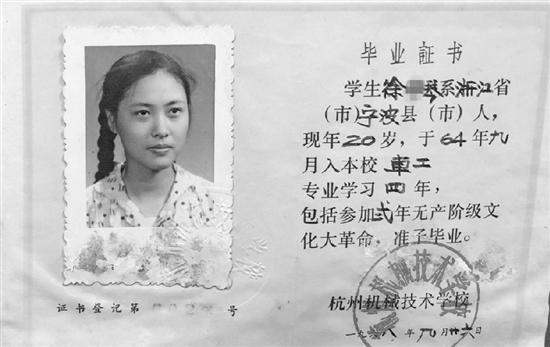 毕业証书
学生徐 系浙江省
(市)宁波县(市)人,
现年20岁,于64年九
月入本校車工
专业学习四年,
包括参加弍年无产阶级文
化大革命,准予毕业。
杭州机械技术学校
一九六八年九月廿六日
证书登记第 号